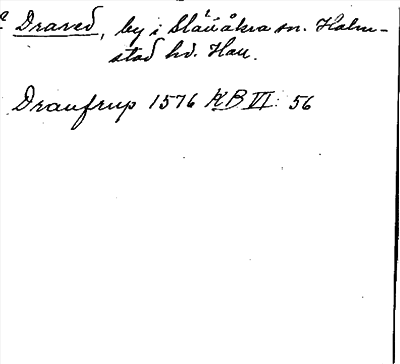 Draved, by i Slättåkra sn. Halm-
stad hd. Hall.
Draufrup 1576 KB VI: 56